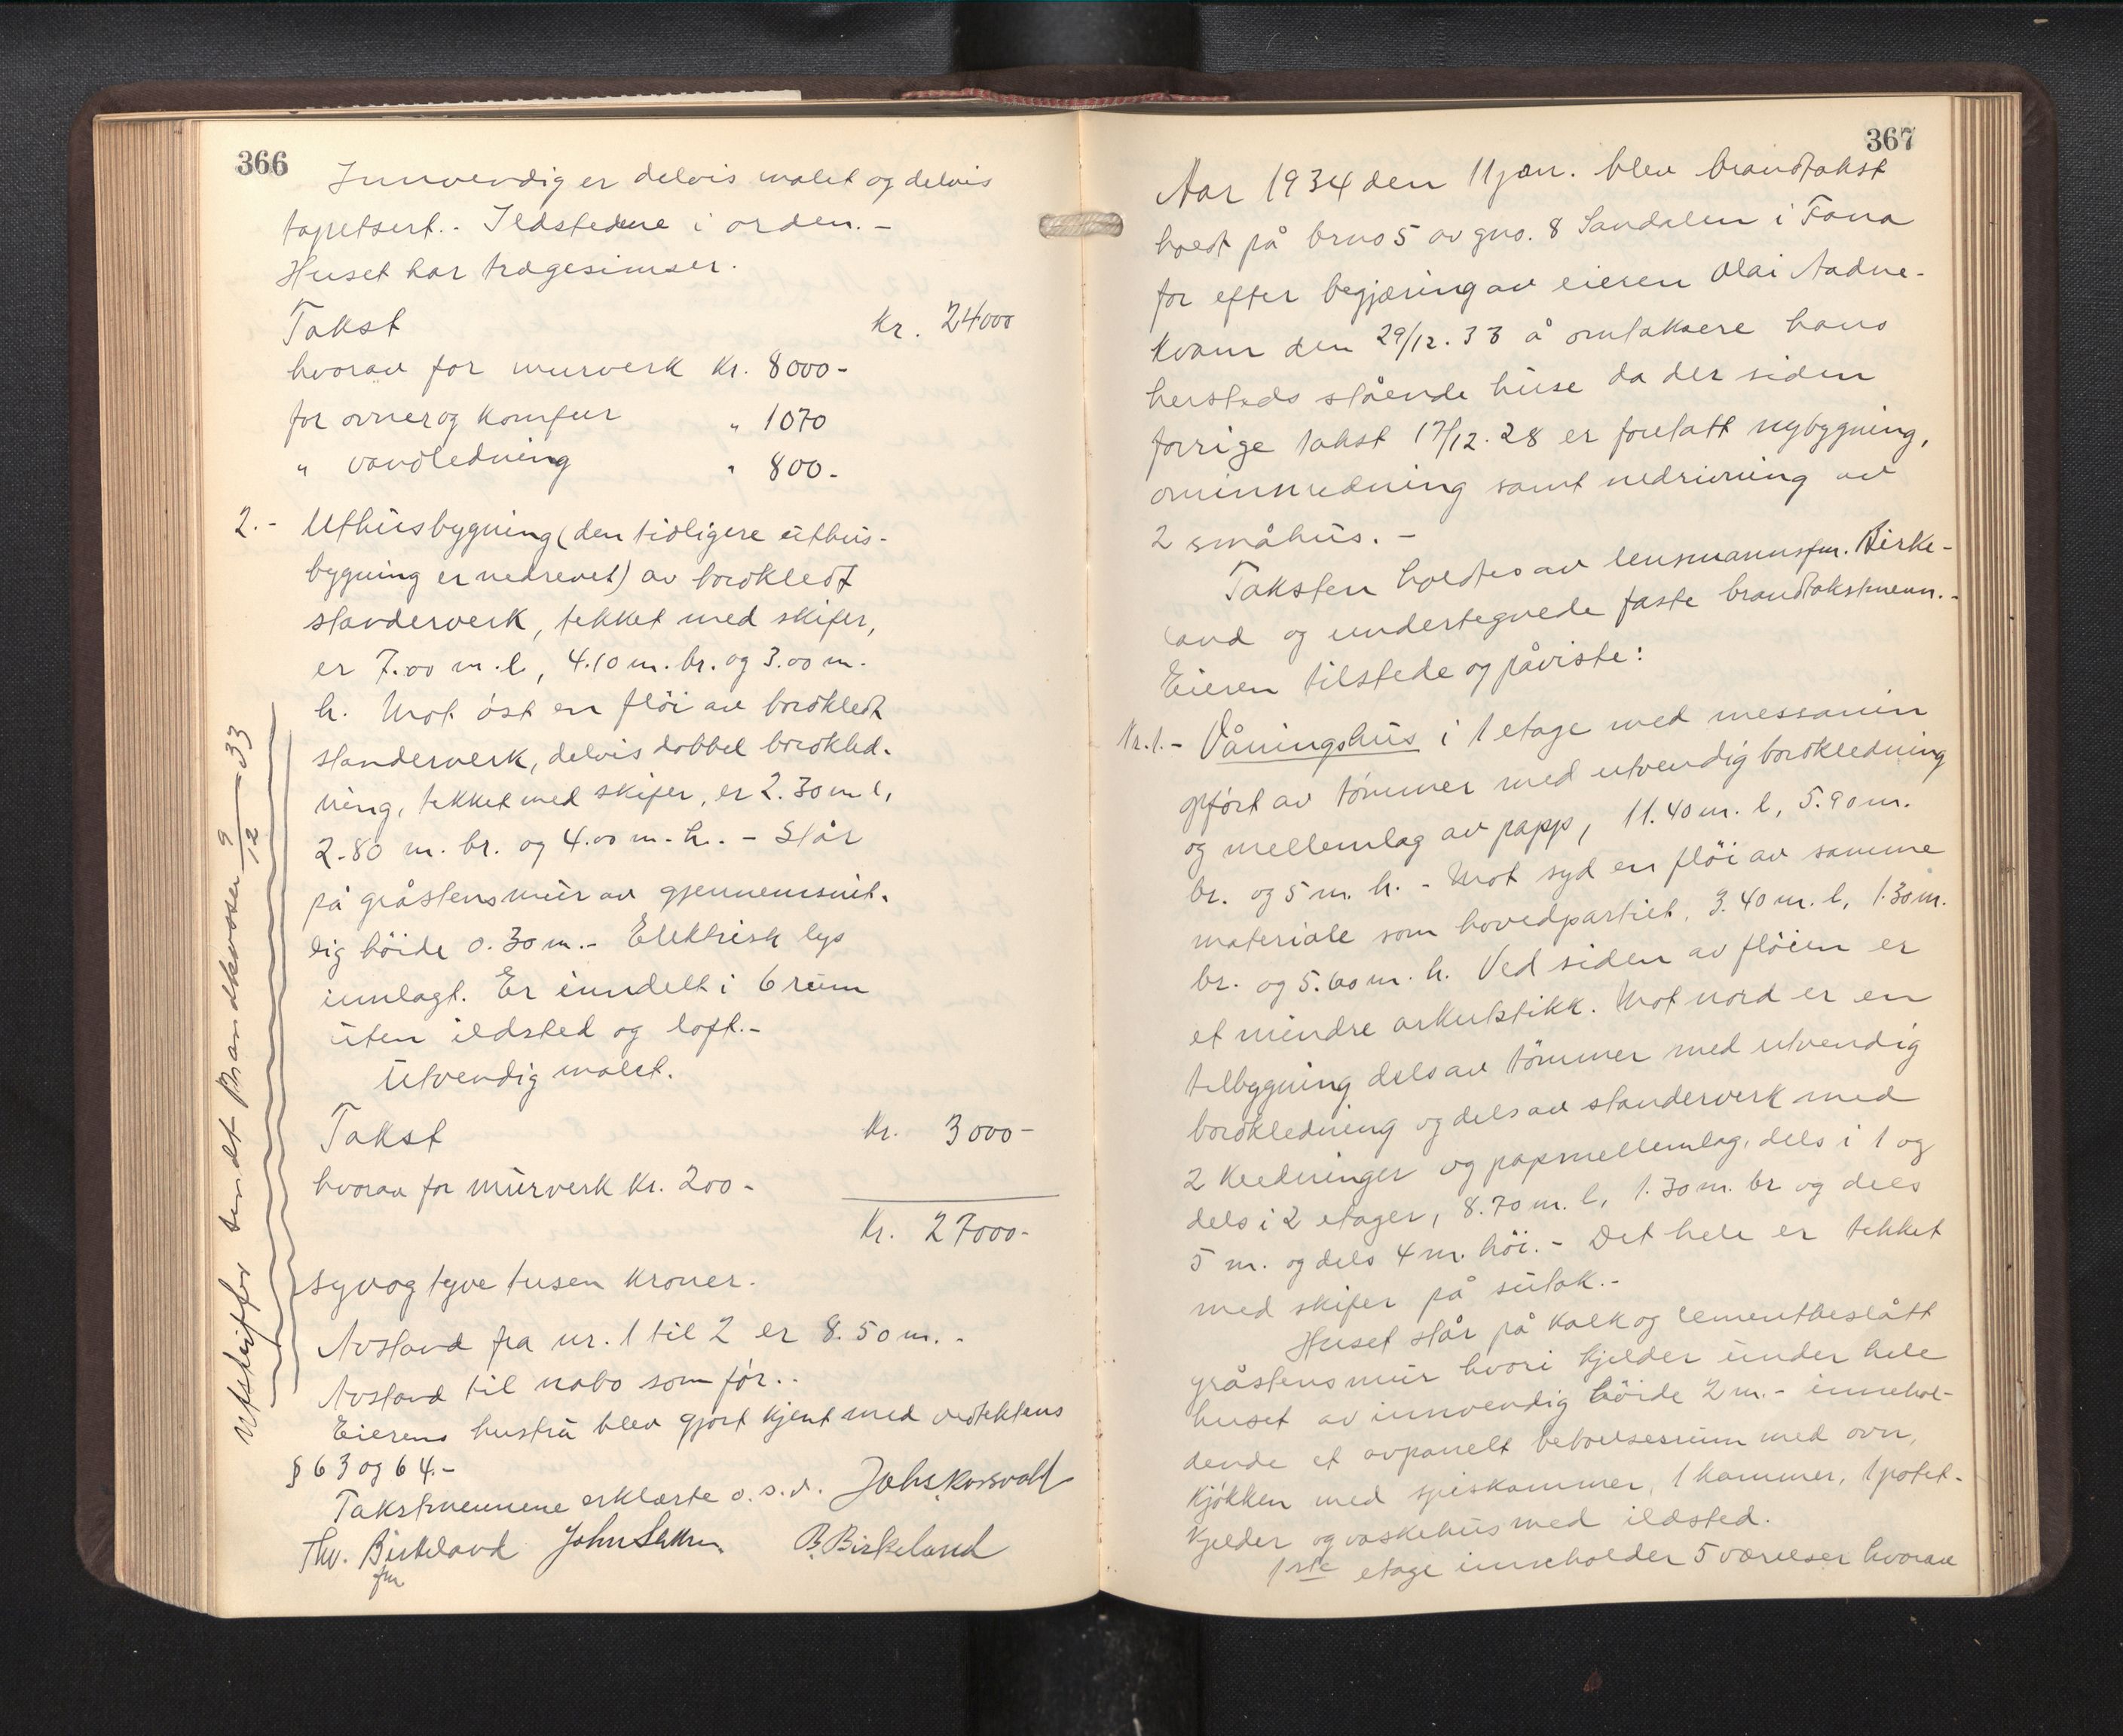 366
Innvendig er delvis malet og delvis
tapetsert.- Ildstedene i orden.-
Huset har trægesimser.
Takst Kr. 24000
hvorav for murverk Kr. 8000-
for ovner og komfur " 1070
" vandledning " 800-
2.- Uthusbygning (den tidligere uthus-
bygning er nedrevet) av bordkledt
standerverk, tekket med skifer,
er 7.00 m.l, 4.10 m. br. og 3.00 m.
h. Mot øst en fløi av bordkledt
standerverk, delvis dobbel bordkled-
ning, tekket med skifer, er 2.30 m l,
2.80 m. br. og 4.00 m. h. - Står
på gråstensmur av gjennemsnit-
lig høide 0.30 m.- Elektrisk lys
innlagt. Er inndelt i 6 rum
uten ildsted og loft.-
Utvendig malet.
Takst Kr. 3000-
hvorav for murverk Kr. 200-
Kr. 27000-
syv og tyve tusen kroner.
Avstand fra nr. 1 til 2 er 8.50 m.-
Avstand til nabo som før..
Eierens hustru blev gjort kjent med vedtektens
§ 63 og 64.-
Takstmennene erklærte o.s.v. Johs. Korsvold
Thv. Birkeland John B. Birkeland
fm
Utskrift sendt Brandkassen 9/12 - 33
367
Aar 1934 den 11 jan. blev brandtakst
holdt på brno 5 av gno. 8 Sandalen i Fana
for efter begjæring av eieren Olai Aadne-
kvam den 29/12.33 å omtaksere hans
hersteds stående huse da der siden
forrige takst 17/12.28 er foretatt nybygning,
ominnredning samt nedrivning av
2 småhus.-
Taksten holdtes av lensmannsfm. Birke-
land og undertegnede faste brandtakstmenn.-
Eieren tilstede og påviste:
Nr.1.- Våningshus i 1 etage med messanin
opført av tømmer med utvendig bordkledning
og mellemlag av papp, 11.40 m. l, 5.90 m.
br. og 5 m. h. - Mot syd en fløi av samme
materiale som hovedpartiet, 3.40 m. l, 1.30 m.
br. og 5.60 m. h. Ved siden av fløien er
et mindre arkutstikk. Mot nord er en
tilbygning dels av tømmer med utvendig
bordkledning og dels av standerverk med
2 kledninger og papmellemlag, dels i 1 og
dels i 2 etager, 8.70 m. l, 1.30 m. br og dels
5 m. og dels 4 m. høi.- Det hele er tekket
med skifer på sutak.-
Huset står på kalk og cementbeslått
gråstensmur hvori kjelder under hele
huset av innvendig høide 2 m.- innehol-
dende et avpanelt beboelsesrum med ovn,
kjøkken med spiskammer, 1 kammer, 1 potet-
kjelder og vaskehus med ildsted.
1ste etage inneholder 5 værelser hvorav